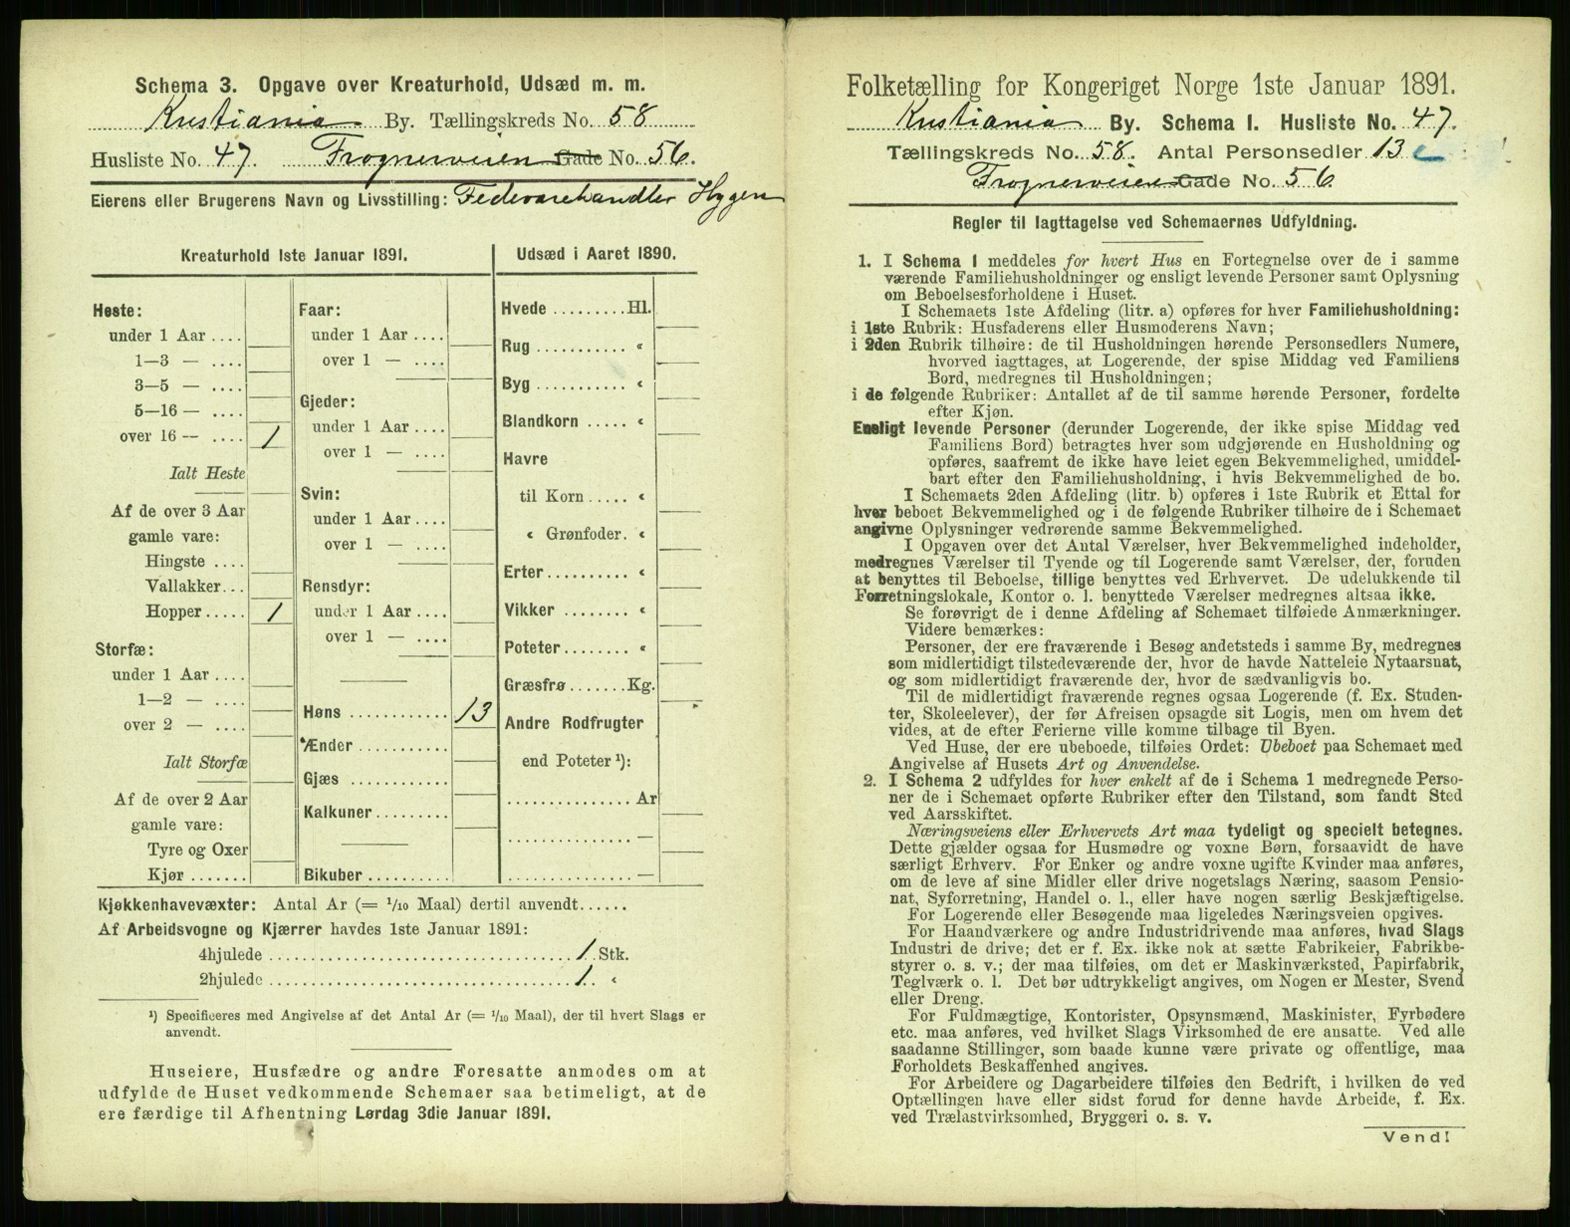 Schema 3. Opgave over Kreaturhold, Udsæd m. m.
Kristiania By. Tællingskreds No. 58
Husliste No. 47. Frognerveien Gade No. 56.
Eierens eller Brugerens Navn og Livsstilling: Fedevarehandler Hygen
Kreaturhold 1ste Januar 1891.
Heste:
under 1 Aar ....
1—3 — ....
3—5 — ....
5—16 — ....
over 16 — .... 1
Ialt Heste
Af de over 3 Aar
gamle vare:
Hingste ....
Vallakker...
Hopper ..... 1
Storfæ:
under 1 Aar ....
1—2 — ....
over 2 — ....
Ialt Storfæ
Af de over 2 Aar
gamle vare:
Tyre og Oxer
Kjør .......
Faar:
under 1 Aar ....
over 1 — ....
Gjeder:
under 1 Aar ....
over 1 — ....
Svin:
under 1 Aar ....
over 1 — ....
Rensdyr:
under 1 Aar ....
over 1 — ....
Høns ............ 13
Ænder ...........
Gjæs ............
Kalkuner.........
Bikuber ..........
Udsæd i Aaret 1890.
Hvede .........Hl.
Rug ........... «
Byg ........... «
Blandkorn ..... «
Havre
til Korn ..... «
« Grønfoder. «
Erter.......... «
Vikker ........ «
Poteter........ «
Græsfrø.......Kg.
Andre Rodfrugter
end Poteter ¹):
............... Ar
............... —
............... —
Kjøkkenhavevæxter: Antal Ar (= 1/10 Maal) dertil anvendt......
Af Arbeidsvogne og Kjærrer havdes 1ste Januar 1891:
4hjulede .................................. 1 Stk.
2hjulede .................................. 1. «
¹) Specificeres med Angivelse af det Antal Ar (= 1/10 Maal), der til hvert Slags er
anvendt.
Huseiere, Husfædre og andre Foresatte anmodes om at
udfylde de Huset vedkommende Schemaer saa betimeligt, at de
ere færdige til Afhentning Lørdag 3die Januar 1891.
Folketælling for Kongeriget Norge 1ste Januar 1891.
Kristiania By. Schema I. Husliste No. 47.
Tællingskreds No. 58. Antal Personsedler 13
Frognerveien Gade No. 56
Regler til Iagttagelse ved Schemaernes Udfyldning.
1. I Schema 1 meddeles for hvert Hus en Fortegnelse over de i samme
værende Familiehusholdninger og ensligt levende Personer samt Oplysning
om Beboelsesforholdene i Huset.
I Schemaets 1ste Afdeling (litr. a) opføres for hver Familiehusholdning:
i 1ste Rubrik: Husfaderens eller Husmoderens Navn;
i 2den Rubrik tilhøire: de til Husholdningen hørende Personsedlers Numere,
hvorved iagttages, at Logerende, der spise Middag ved Familiens
Bord, medregnes til Husholdningen;
i de følgende Rubriker: Antallet af de til samme hørende Personer, fordelte
efter Kjøn.
Ensligt levende Personer (derunder Logerende, der ikke spise Middag ved
Familiens Bord) betragtes hver som udgjørende en Husholdning og
opføres, saafremt de ikke have leiet egen Bekvemmelighed, umiddel-
bart efter den Familiehusholdning, i hvis Bekvemmelighed de bo.
I Schemaets 2den Afdeling (litr. b) opføres i 1ste Rubrik et Ettal for
hver beboet Bekvemmelighed og i de følgende Rubriker tilhøire de i Schemaet
angivne Oplysninger vedrørende samme Bekvemmelighed.
I Opgaven over det Antal Værelser, hver Bekvemmelighed indeholder,
medregnes Værelser til Tyende og til Logerende samt Værelser, der, foruden
at benyttes til Beboelse, tillige benyttes ved Erhvervet. De udelukkende til
Forretningslokale, Kontor o. l. benyttede Værelser medregnes altsaa ikke.
Se forøvrigt de i denne Afdeling af Schemaet tilføiede Anmærkninger.
Videre bemærkes:
Personer, der ere fraværende i Besøg andetsteds i samme By, medregnes
som midlertidigt tilstedeværende der, hvor de havde Natteleie Nytaarsnat,
og som midlertidigt fraværende der, hvor de sædvanligvis bo.
Til de midlertidigt fraværende regnes ogsaa Logerende (f. Ex. Studen-
ter, Skoleelever), der før Afreisen opsagde sit Logis, men om hvem det
vides, at de efter Ferierne ville komme tilbage til Byen.
Ved Huse, der ere ubeboede, tilføies Ordet: Ubeboet paa Schemaet med
Angivelse af Husets Art og Anvendelse.
2. I Schema 2 udfyldes for hver enkelt af de i Schema 1 medregnede Perso-
ner de i Schemaet opførte Rubriker efter den Tilstand, som fandt Sted
ved Aarsskiftet.
Næringsveiens eller Erhvervets Art maa tydeligt og specielt betegnes.
Dette gjælder ogsaa for Husmødre og voxne Børn, forsaavidt de have
særligt Erhverv. For Enker og andre voxne ugifte Kvinder maa anføres,
om de leve af sine Midler eller drive nogetslags Næring, saasom Pensio-
nat, Syforretning, Handel o. l., eller have nogen særlig Beskjæftigelse.
For Logerende eller Besøgende maa ligeledes Næringsveien opgives.
For Haandværkere og andre Industridrivende maa anføres, hvad Slags
Industri de drive; det er f. Ex. ikke nok at sætte Fabrikeier, Fabrikbe-
styrer o. s. v.; der maa tilføies, om det er Maskinværksted, Papirfabrik,
Teglværk o. l. Det bør udtrykkeligt angives, om Nogen er Mester, Svend
eller Dreng.
For Fuldmægtige, Kontorister, Opsynsmænd, Maskinister, Fyrbødere
etc. maa anføres, ved hvilket Slags Virksomhed de ere ansatte. Ved alle
saadanne Stillinger, som baade kunne være private og offentlige, maa
Forholdets Beskaffenhed angives.
For Arbeidere og Dagarbeidere tilføies den Bedrift, i hvilken de ved
Optællingen have eller sidst forud for denne havde Arbeide, f. Ex.
ved Trælastvirksomhed, Bryggeri o. s. v.
Vend!